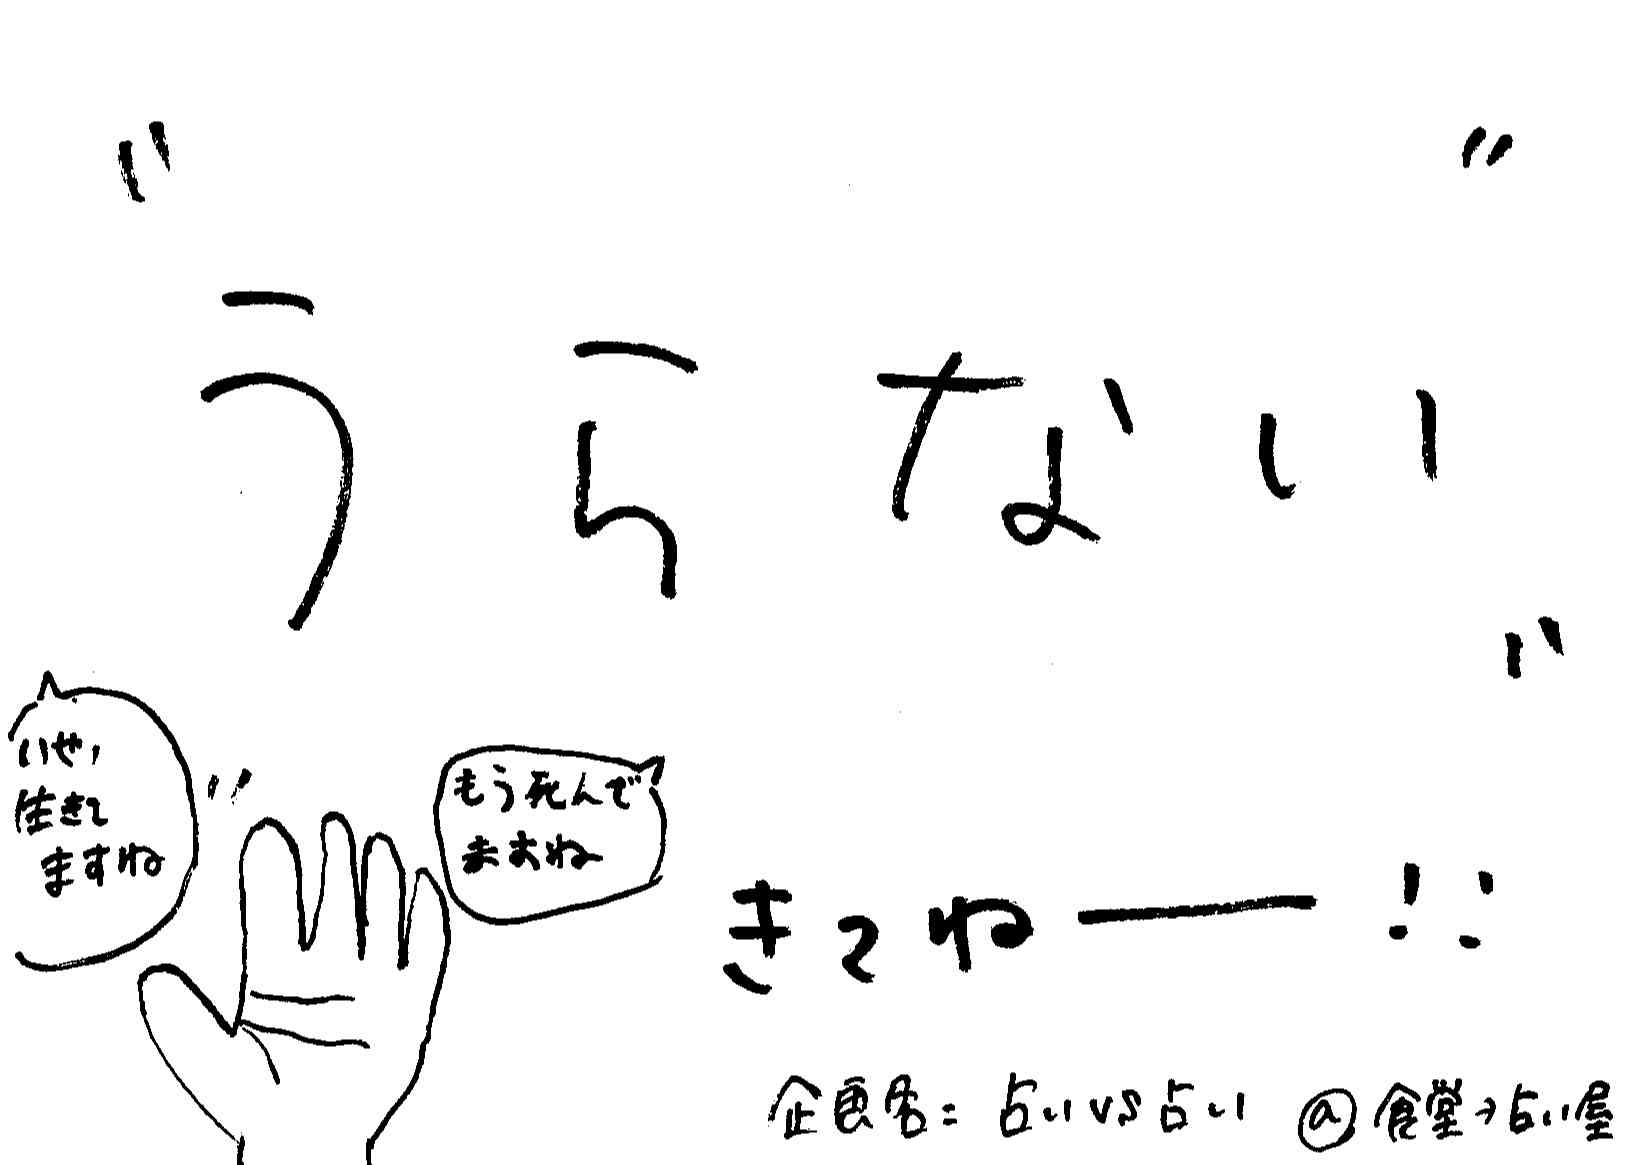 "うらない"
いや、
生きて
ますね
もう死んで
ますね
"きてねー!!"
企画名:占いvs占い @食堂→占い屋